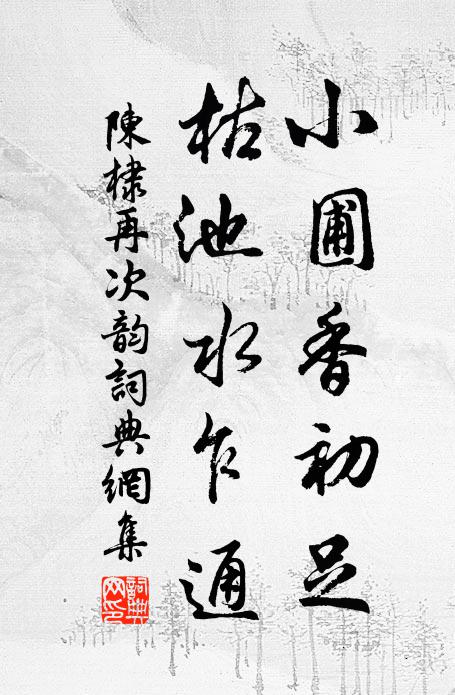 小圃香初足
枯池水乍通
陳棣再次韵詞典網集
詞典网印